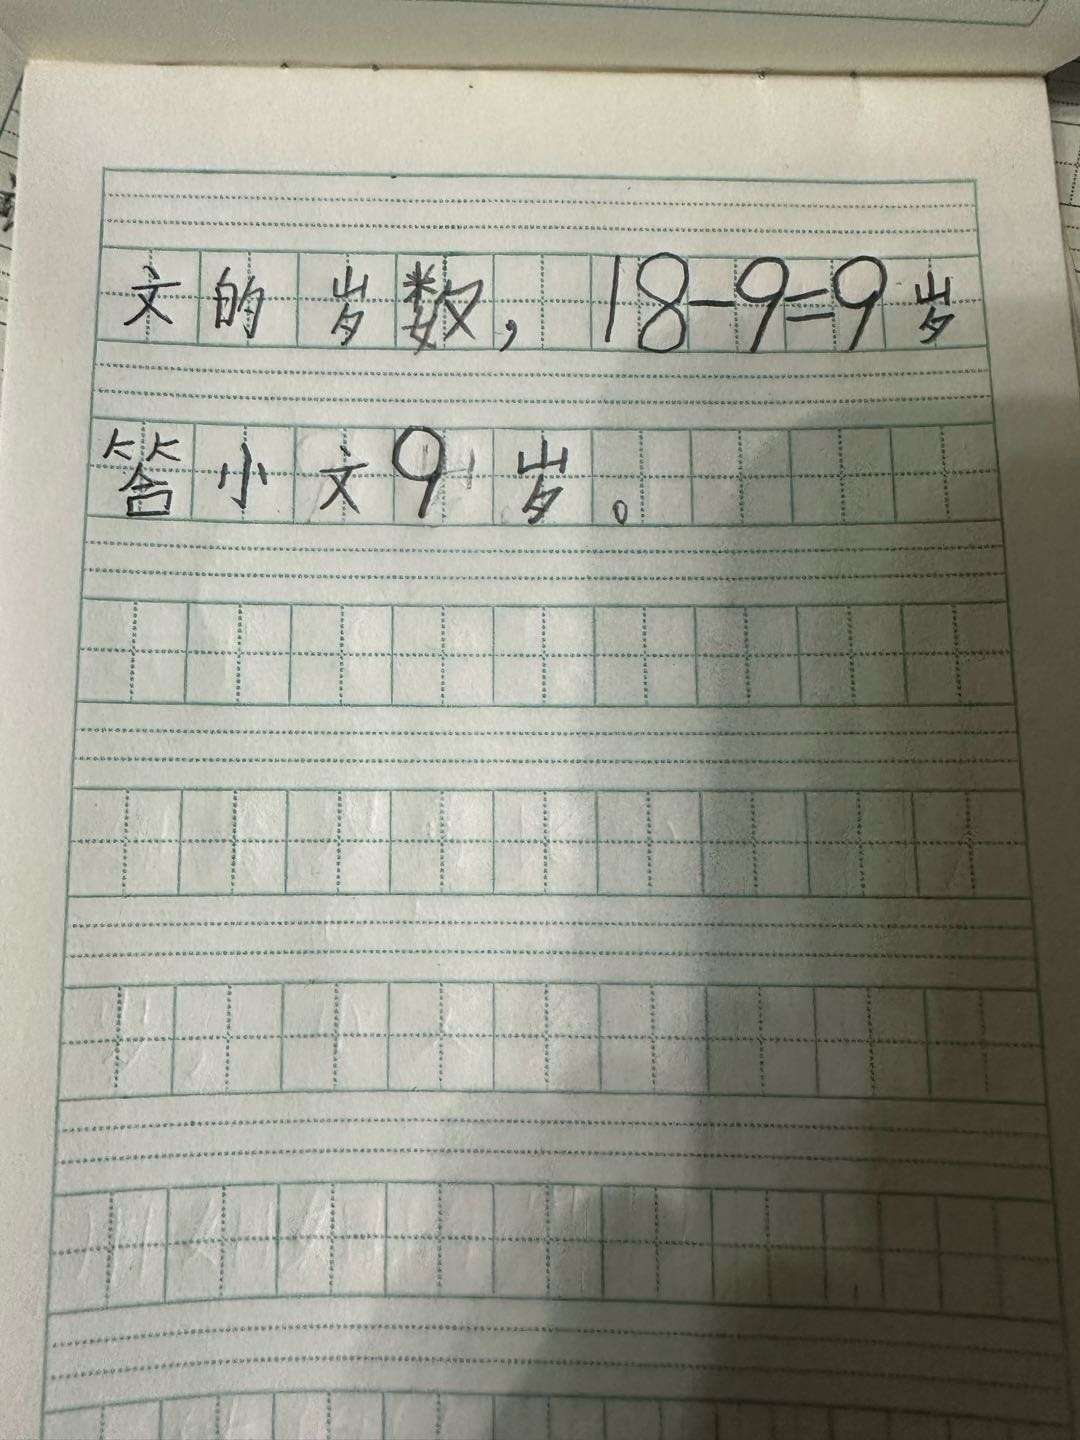 文的岁数，18-9=9岁
答小文9岁。